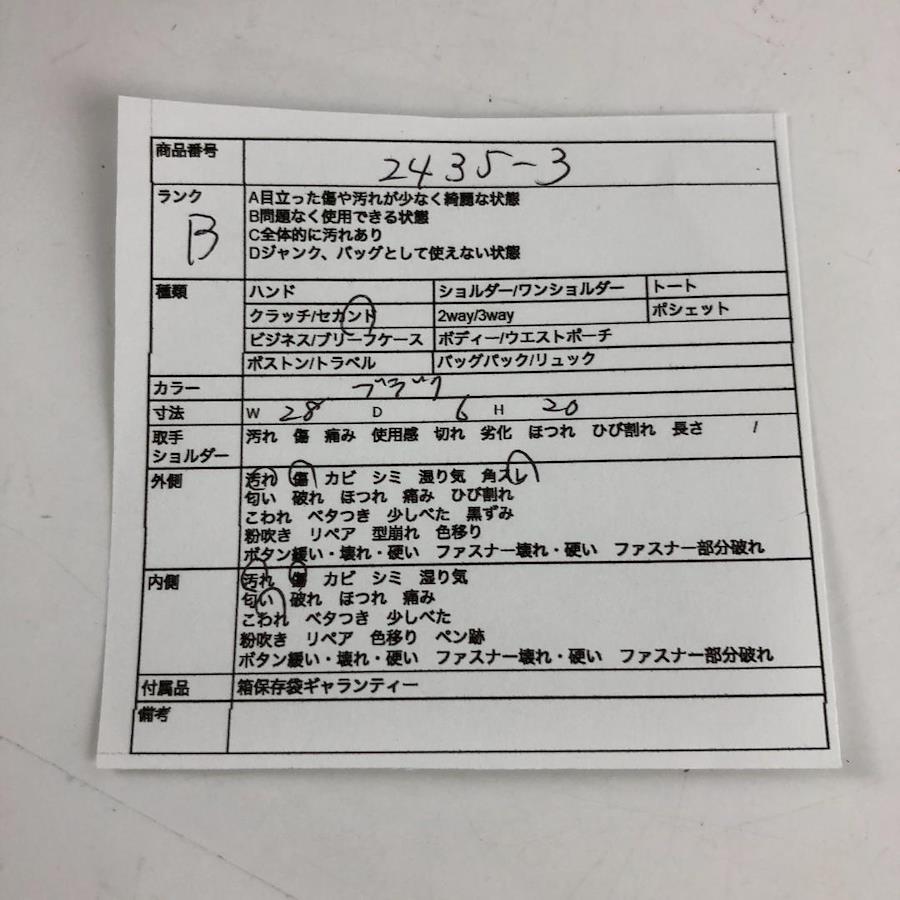 商品番号 2435-3
ランク B
A目立った傷や汚れが少なく綺麗な状態
B問題なく使用できる状態
C全体的に汚れあり
Dジャンク、バッグとして使えない状態
種類 ハンド ショルダー/ワンショルダー トート
クラッチ/セカンド 2way/3way ポシェット
ビジネス/ブリーフケース ボディー/ウエストポーチ
ボストン/トラベル バッグパック/リュック
カラー ブラック
寸法 W 28 D 6 H 20
取手 汚れ 傷 痛み 使用感 切れ 劣化 ほつれ ひび割れ 長さ /
ショルダー
外側 汚れ 傷 カビ シミ 湿り気 角スレ
匂い 破れ ほつれ 痛み ひび割れ
こわれ ベタつき 少しべた 黒ずみ
粉吹き リペア 型崩れ 色移り
ボタン緩い・壊れ・硬い ファスナー壊れ・硬い ファスナー部分破れ
内側 汚れ 傷 カビ シミ 湿り気
匂い 破れ ほつれ 痛み
こわれ ベタつき 少しべた
粉吹き リペア 色移り ペン跡
ボタン緩い・壊れ・硬い ファスナー壊れ・硬い ファスナー部分破れ
付属品 箱保存袋ギャランティー
備考